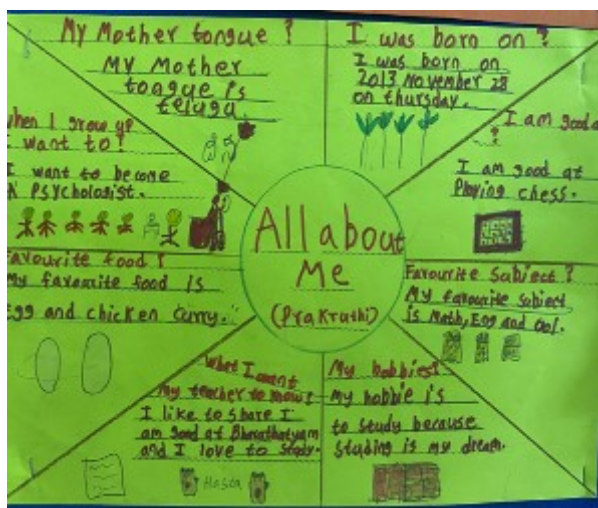 My Mother tongue ?
My Mother
tongue is
telugu.
I was born on ?
I was born on
2013 November 28
on thursday.
I am good a
?
I am good at
Playing chess.
Favourite Subject ?
My favourite subject
is Math, Eng and
My hobbies?
my hobbie is
to study because
studing is my dream.
What I want
my teacher to know?
I like to share I
am good at Bharathatyam
and I love to study.
Favourite food ?
My favourite food is
Egg and chicken curry.
When I grow up?
I want to!
I want to become
A Psychologist.
All about
Me
(Prakruthi)